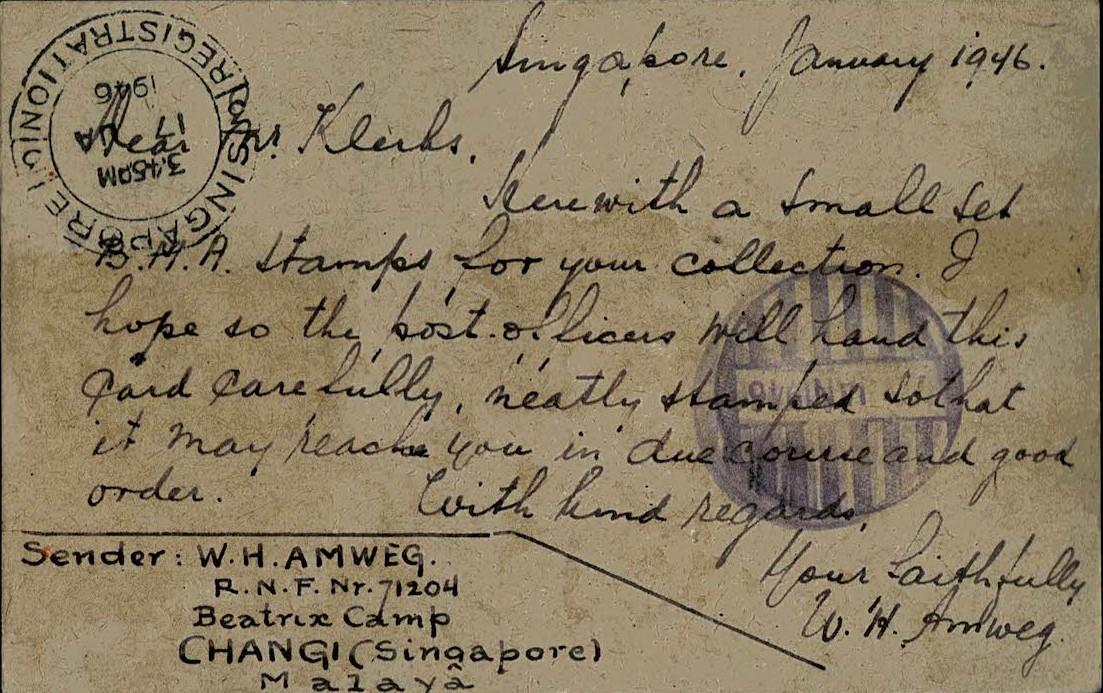 Singapore, January 1946.
SINGAPORE REGISTRATION
1946
17 JA
3.45PM
Dear Mr. Klerks,
Herewith a small set
B.M.A. stamps for your collection. I
hope so the post-officers will hand this
card carefully, neatly stamped so that
it may reach you in due course and good
order. With kind regards,
Your faithfully
W. H. Amweg.
Sender: W.H. AMWEG.
R.N.F. Nr. 71204
Beatrix Camp
CHANGI (Singapore)
Malaya